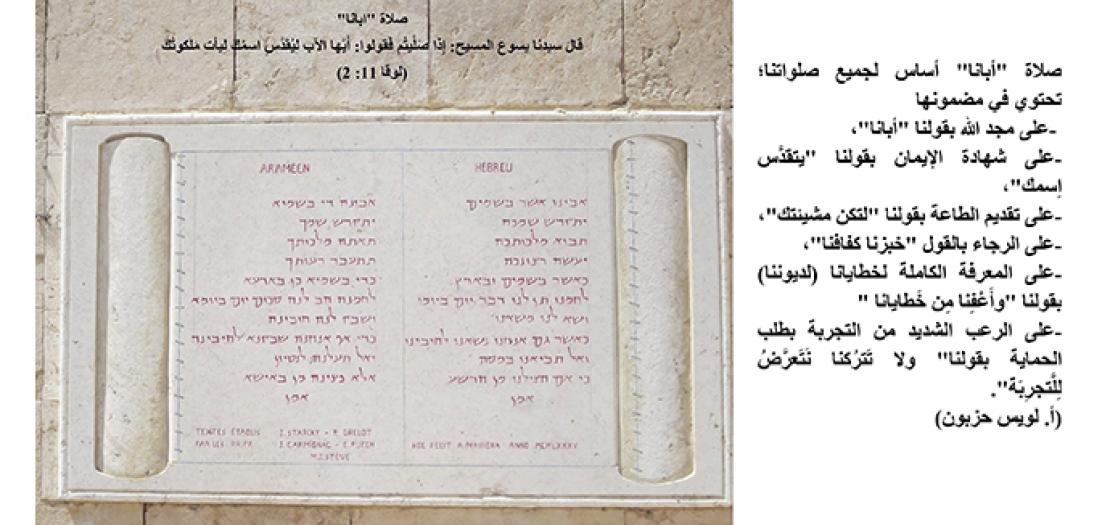 صلاة "ابانا"
قال سيدنا يسوع المسيح: إذا صَلَّيتُم فَقولوا: أَيُّها الآب لِيُقَدَّسِ اسمُكَ لِيأتِ مَلَكوتُكَ
(لوقا 11: 2)
ARAMEEN
אבונה די בשמיא
יתקדש שמך
תאתה מלכותך
תתעבד רעותך
כדי בשמיא כן בארעא
לחמנה הב לנה יום ביומא
ושבק לנה חובינה
כדי אף אנחנה שבקנא לחיבינה
ואל תעלנה לנסיון
אלא פצינה מן באישא
אמן
HEBREU
אבינו אשר בשמים
יתקדש שמכה
תביא מלכותכה
יעשה רצונכה
כאשר בשמים ובארץ
לחמנו תן לנו דבר יום ביומו
ושא לנו פשאנו
כאשר גם אנחנו נשאנו לחיבינו
ואל תביאנו במסה
כי אם הצילנו מן הרשע
אמן
TEXTES ETABLIS J. STARCKY - P. GRELOT
PAR LES RR.PP. J. CARMIGNAC - E. PUECH
M.J. STEVE
HOC FECIT A. MANIERA ANNO MCMLXXXV
صلاة "أبانا" أساس لجميع صلواتنا؛
تحتوي في مضمونها
-على مجد الله بقولنا "أبانا"،
-على شهادة الإيمان بقولنا "يتقدَّس
اِسمك"،
-على تقديم الطاعة بقولنا "لتكن مشيئتك"،
-على الرجاء بالقول "خبزنا كفافنا"،
-على المعرفة الكاملة لخطايانا (لديوننا)
بقولنا "وأَعْفِنا مِن خَطايانا "
-على الرعب الشديد من التجربة بطلب
الحماية بقولنا" ولا تَترُكنا نَتَعرَّضُ
لِلتَّجرِبَة".
(أ. لويس حزبون)